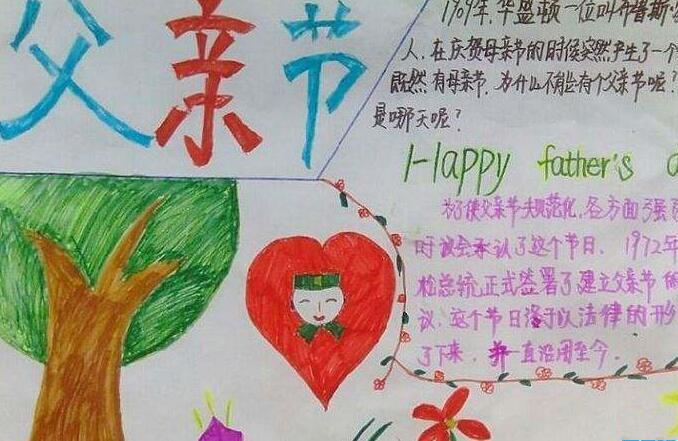 父亲节
1909年,华盛顿一位叫布鲁斯·
人,在庆贺母亲节的时候突然产生了一个
既然有母亲节,为什么不能有个父亲节呢?
是哪天呢?
Happy father's
为了使父亲节规范化,各方面强
时议会承认了这个节日。1972年
松总统正式签署了建立父亲节的
议,这个节日终于以法律的形
了下来,并一直沿用至今。